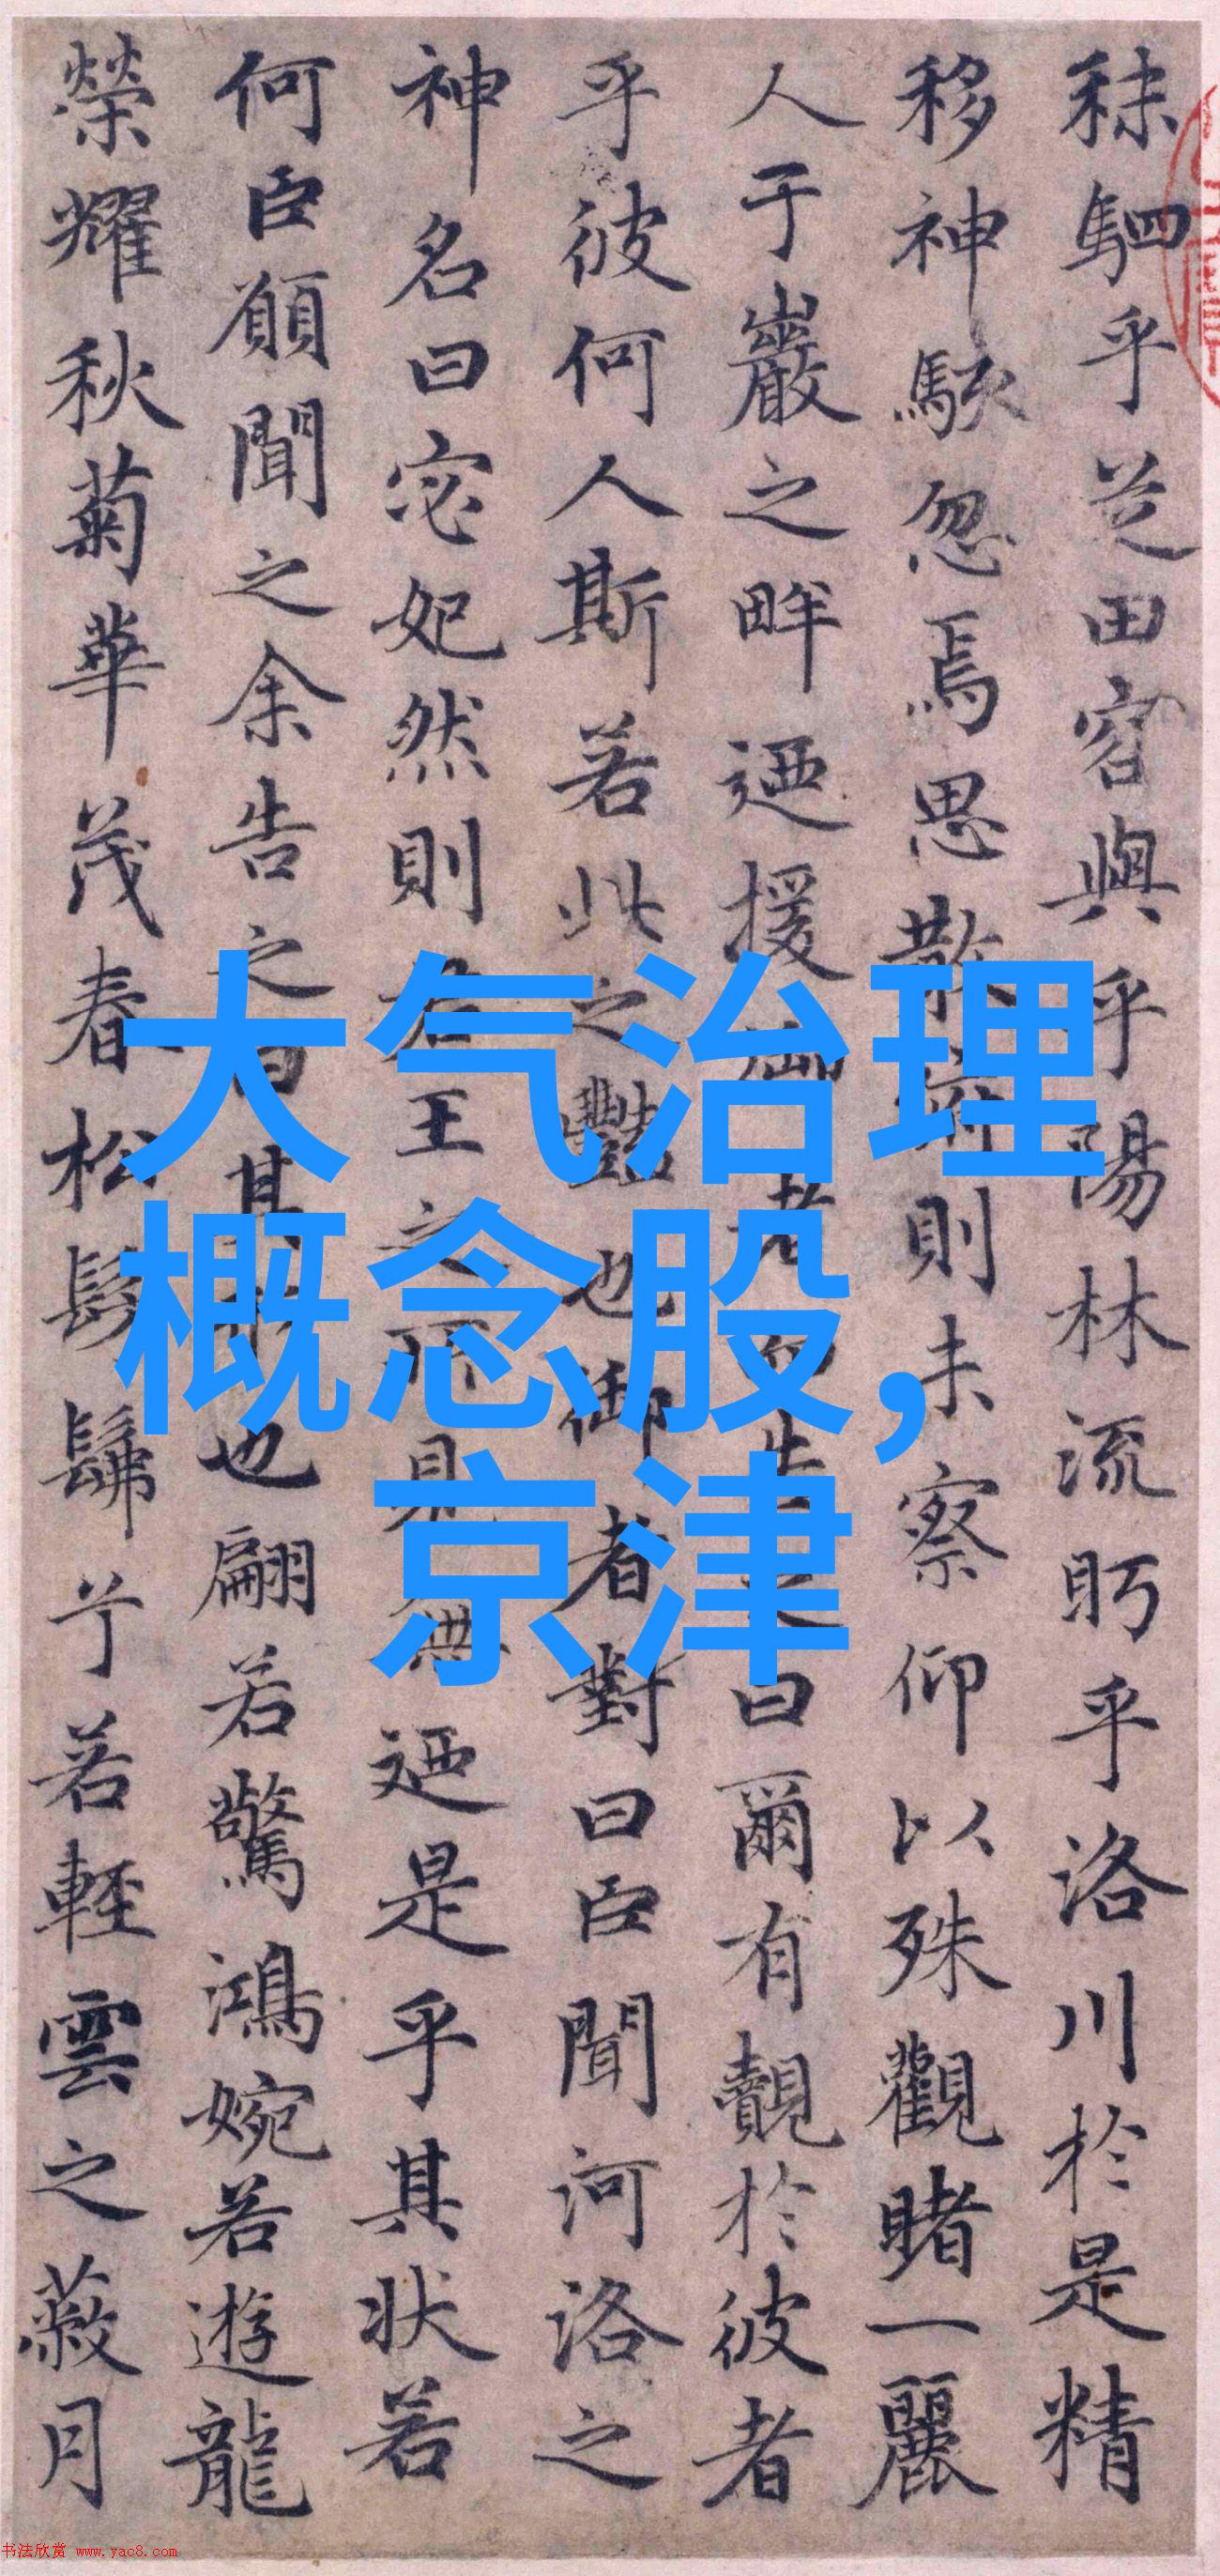 秣駟乎芝田容與乎陽林流眄乎洛川於是精
移神駭忽焉思散俯則未察仰以殊觀睹一麗
人于巖之畔迺援御者而告之曰爾有覿於彼者
乎彼何人斯若此之豔也御者對曰臣聞河洛之
神名曰宓妃然則君王之所見無迺是乎其狀若
何臣願聞之余告之曰其形也翩若驚鴻婉若遊龍
榮耀秋菊華茂春松髣髴兮若輕雲之蔽月
大气治理
概念股，
京津
书法欣赏 www.yac8.com